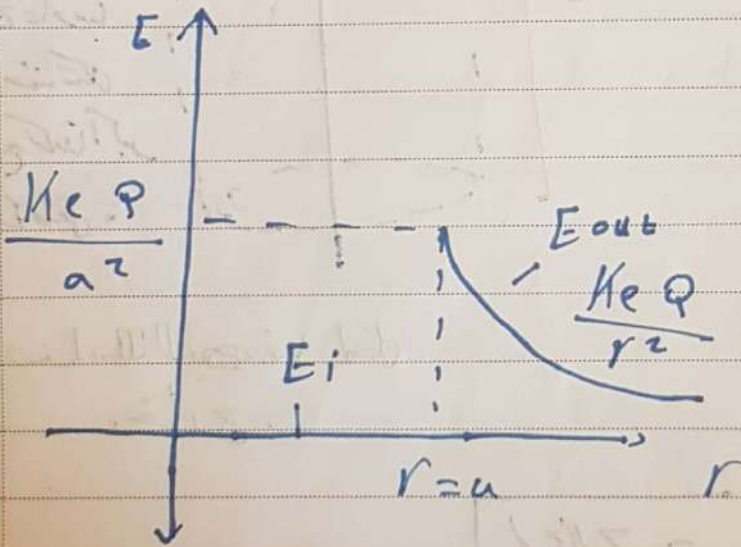 E
Ke Q
a²
E out
Ke Q
r²
Ei
r = a
r